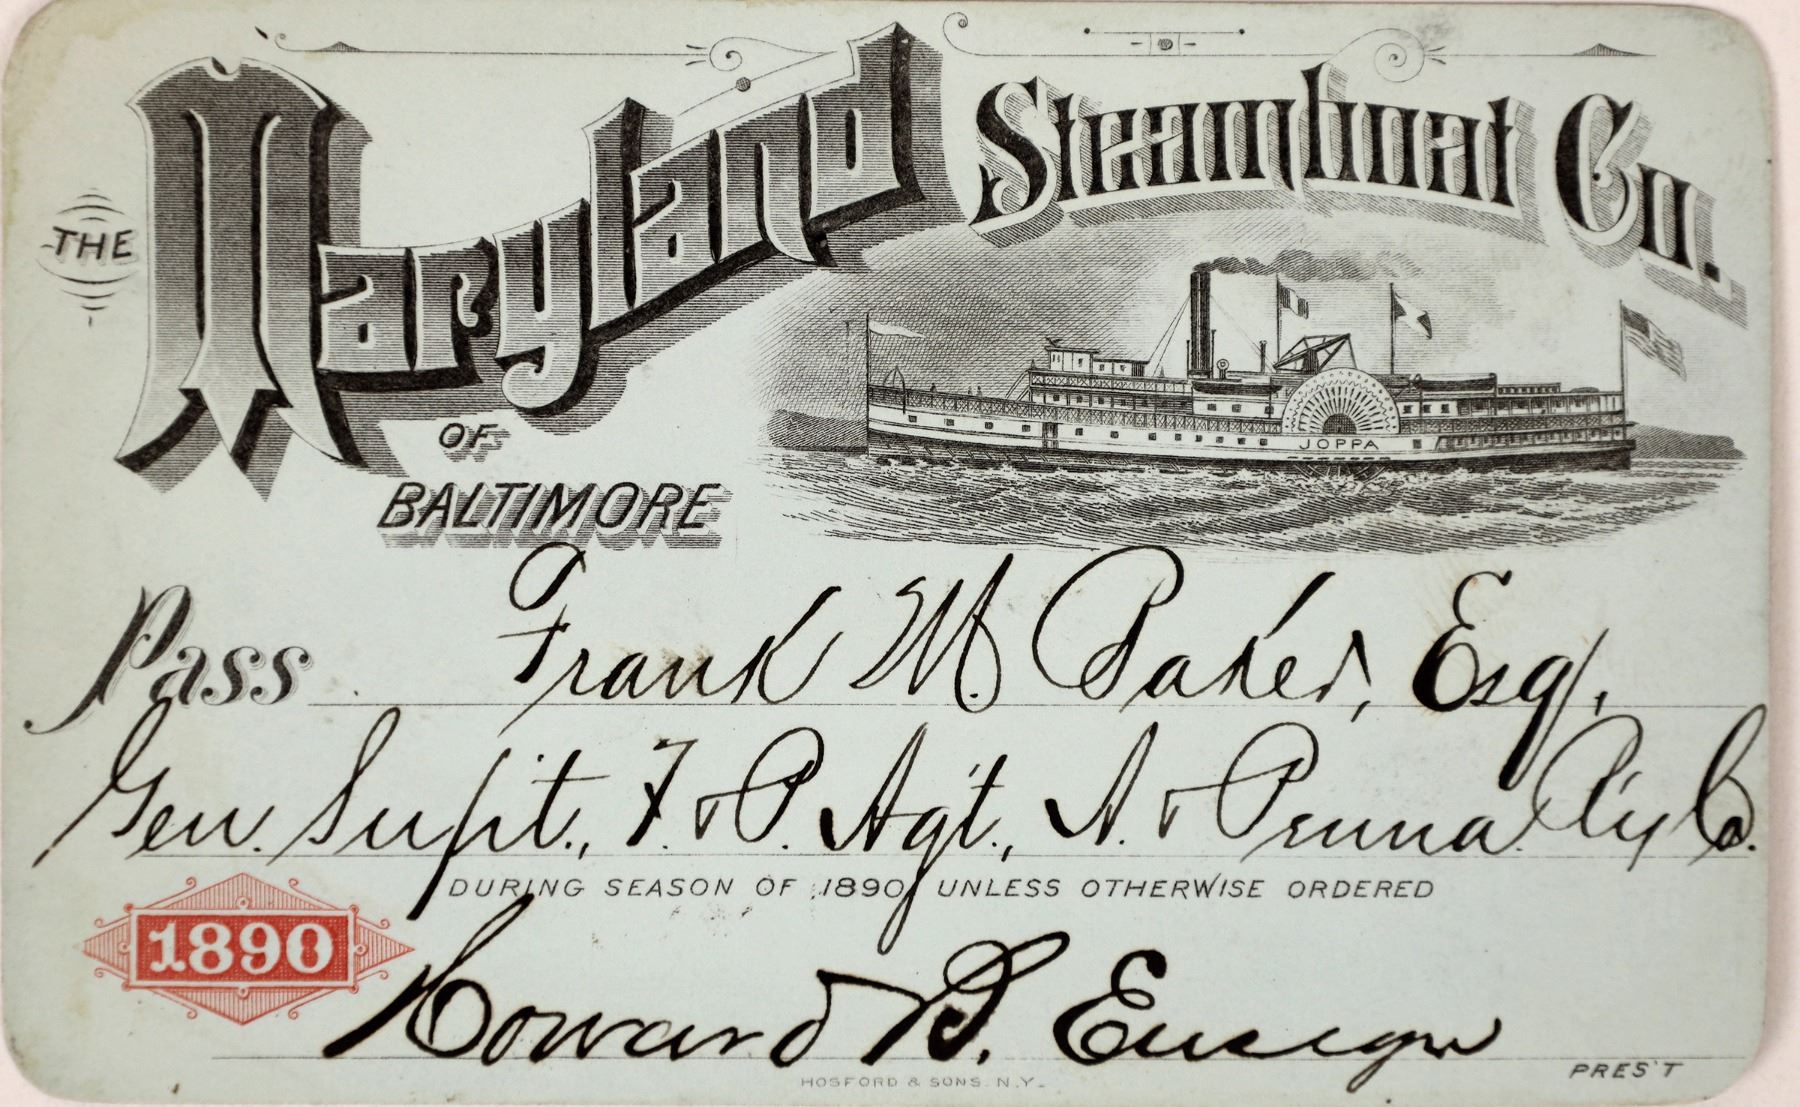 THE Maryland Steamboat Co.
OF
BALTIMORE
JOPPA
Pass Frank M. Baker, Esq.,
Gen. Sup't., F. & P. Agt., A. & Penna. Ry Co.
DURING SEASON OF 1890 UNLESS OTHERWISE ORDERED
1890
Howard B. Ensign
PRES'T
HOSFORD & SONS. N.Y.